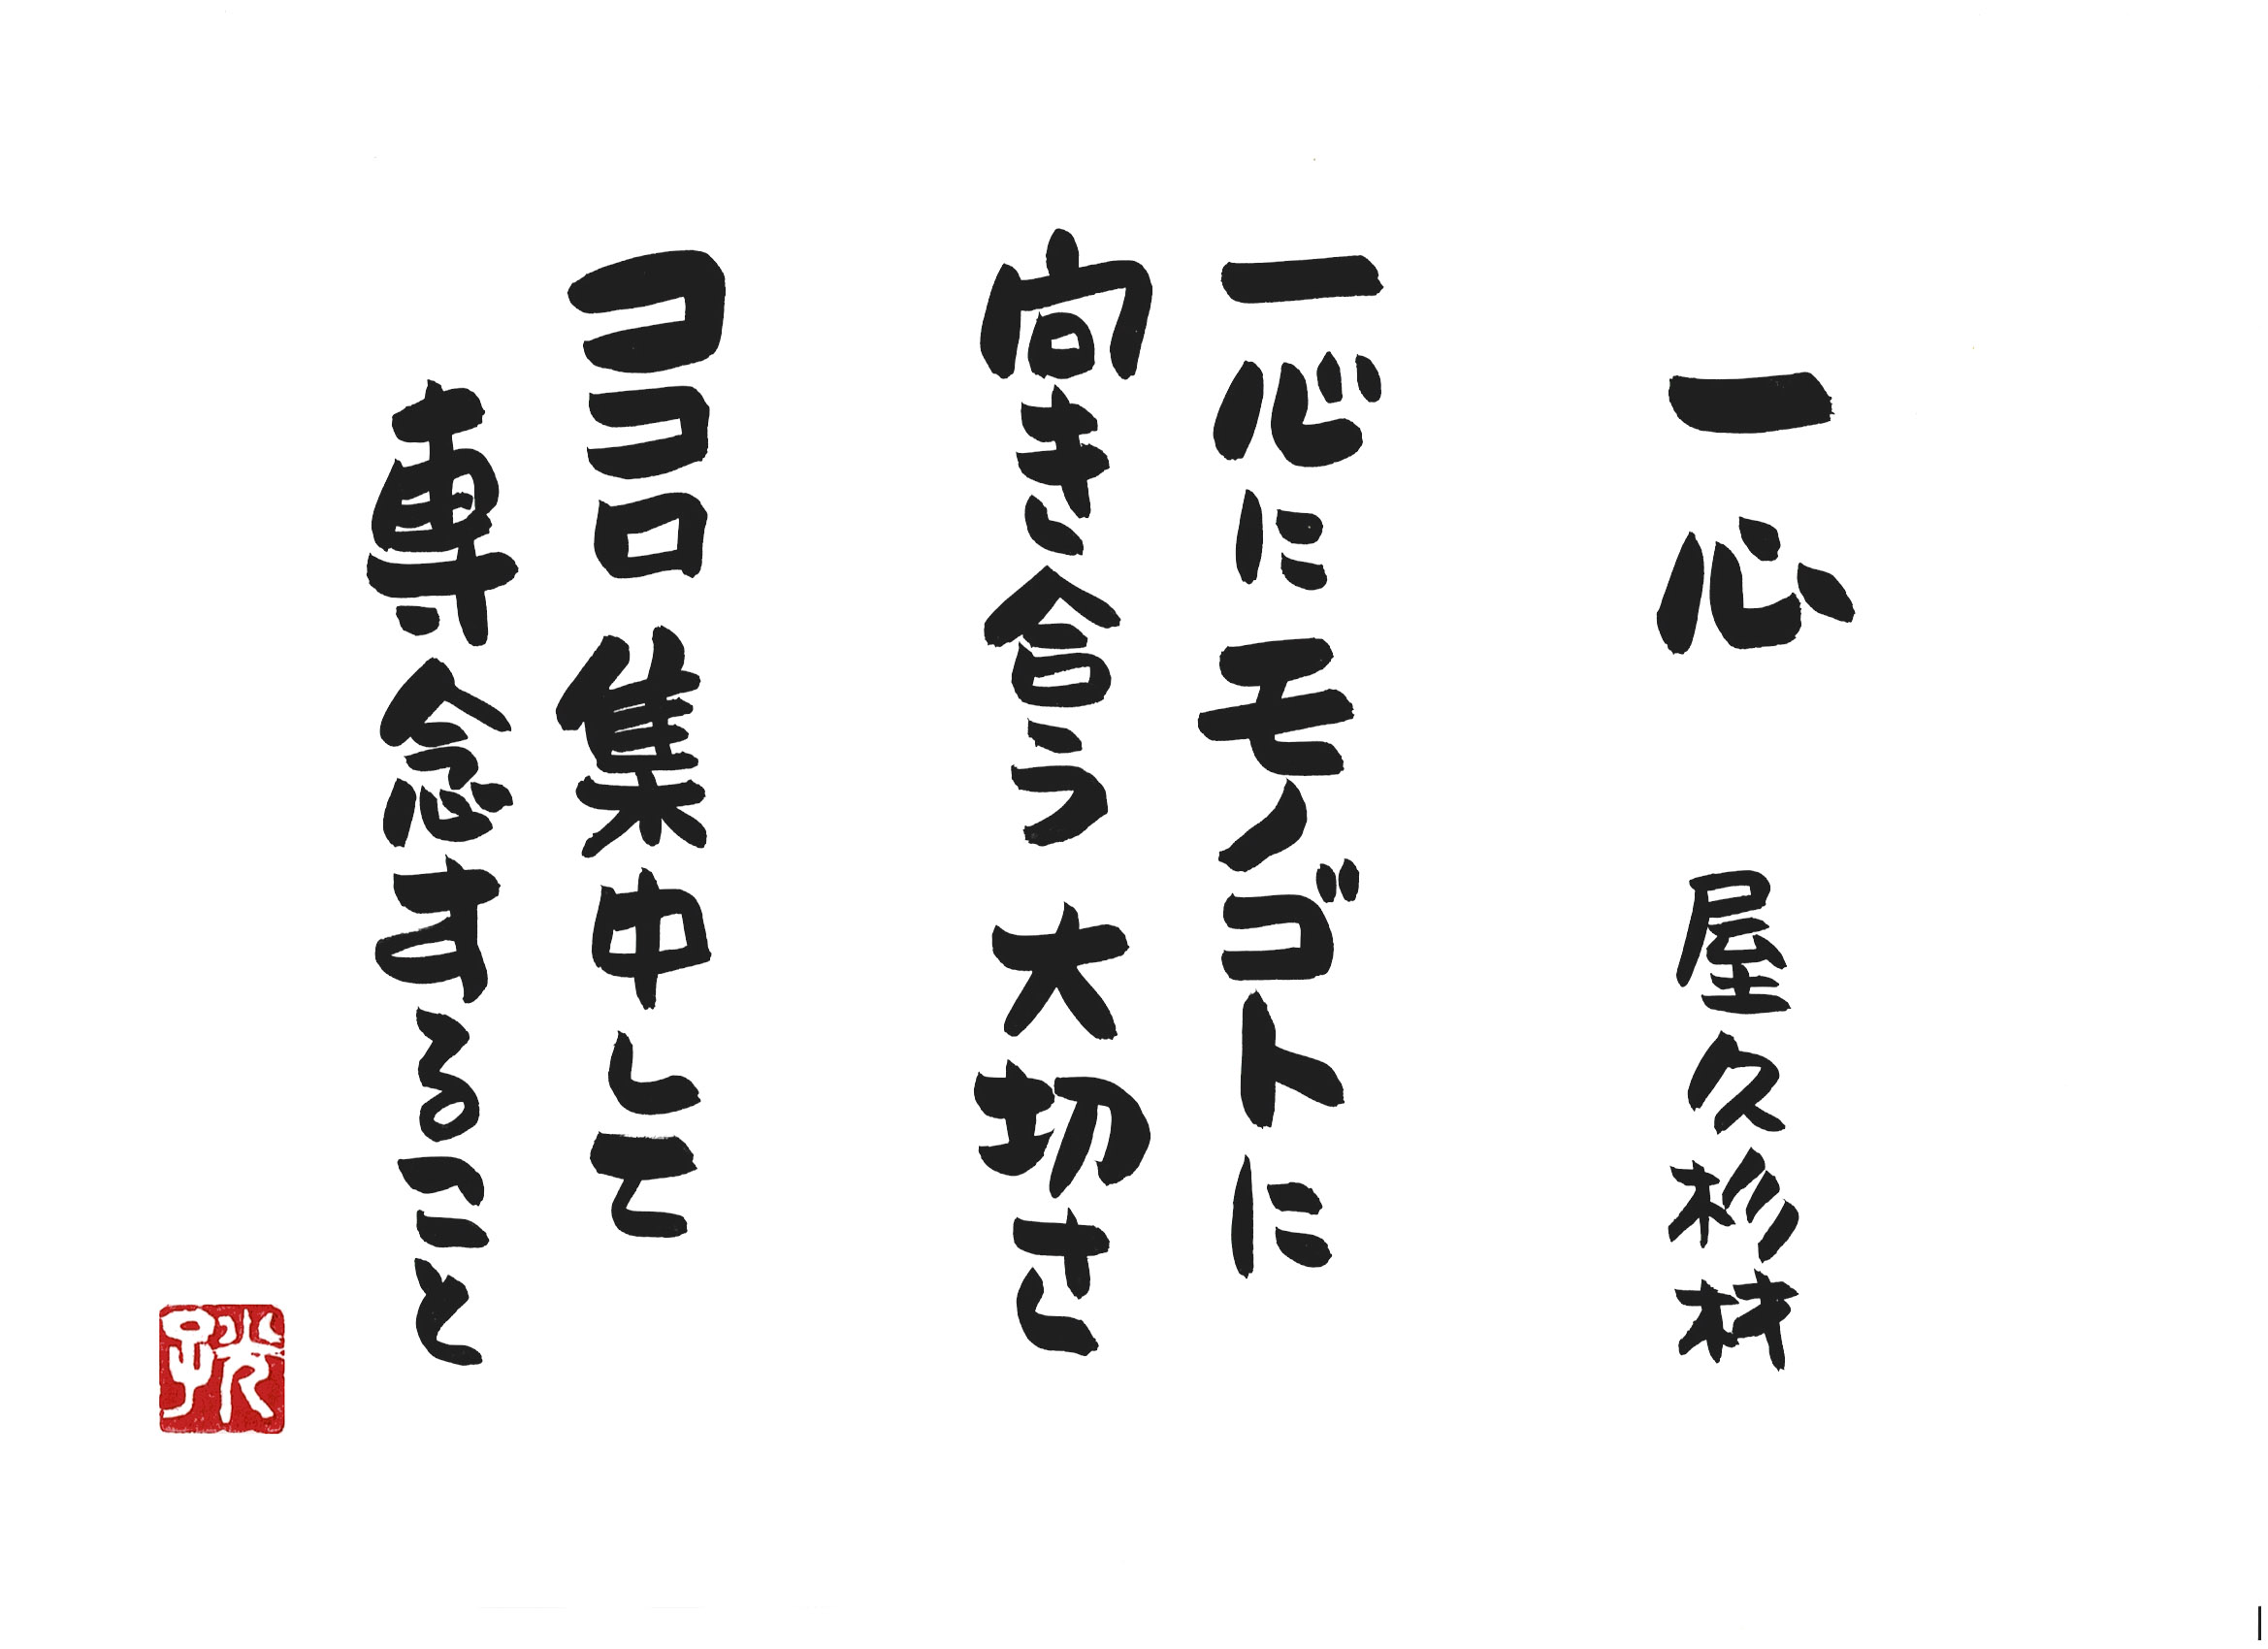 一心　屋久杉材
一心に モノゴトに
向き合う 大切さ
ココロ 集中して
専念すること